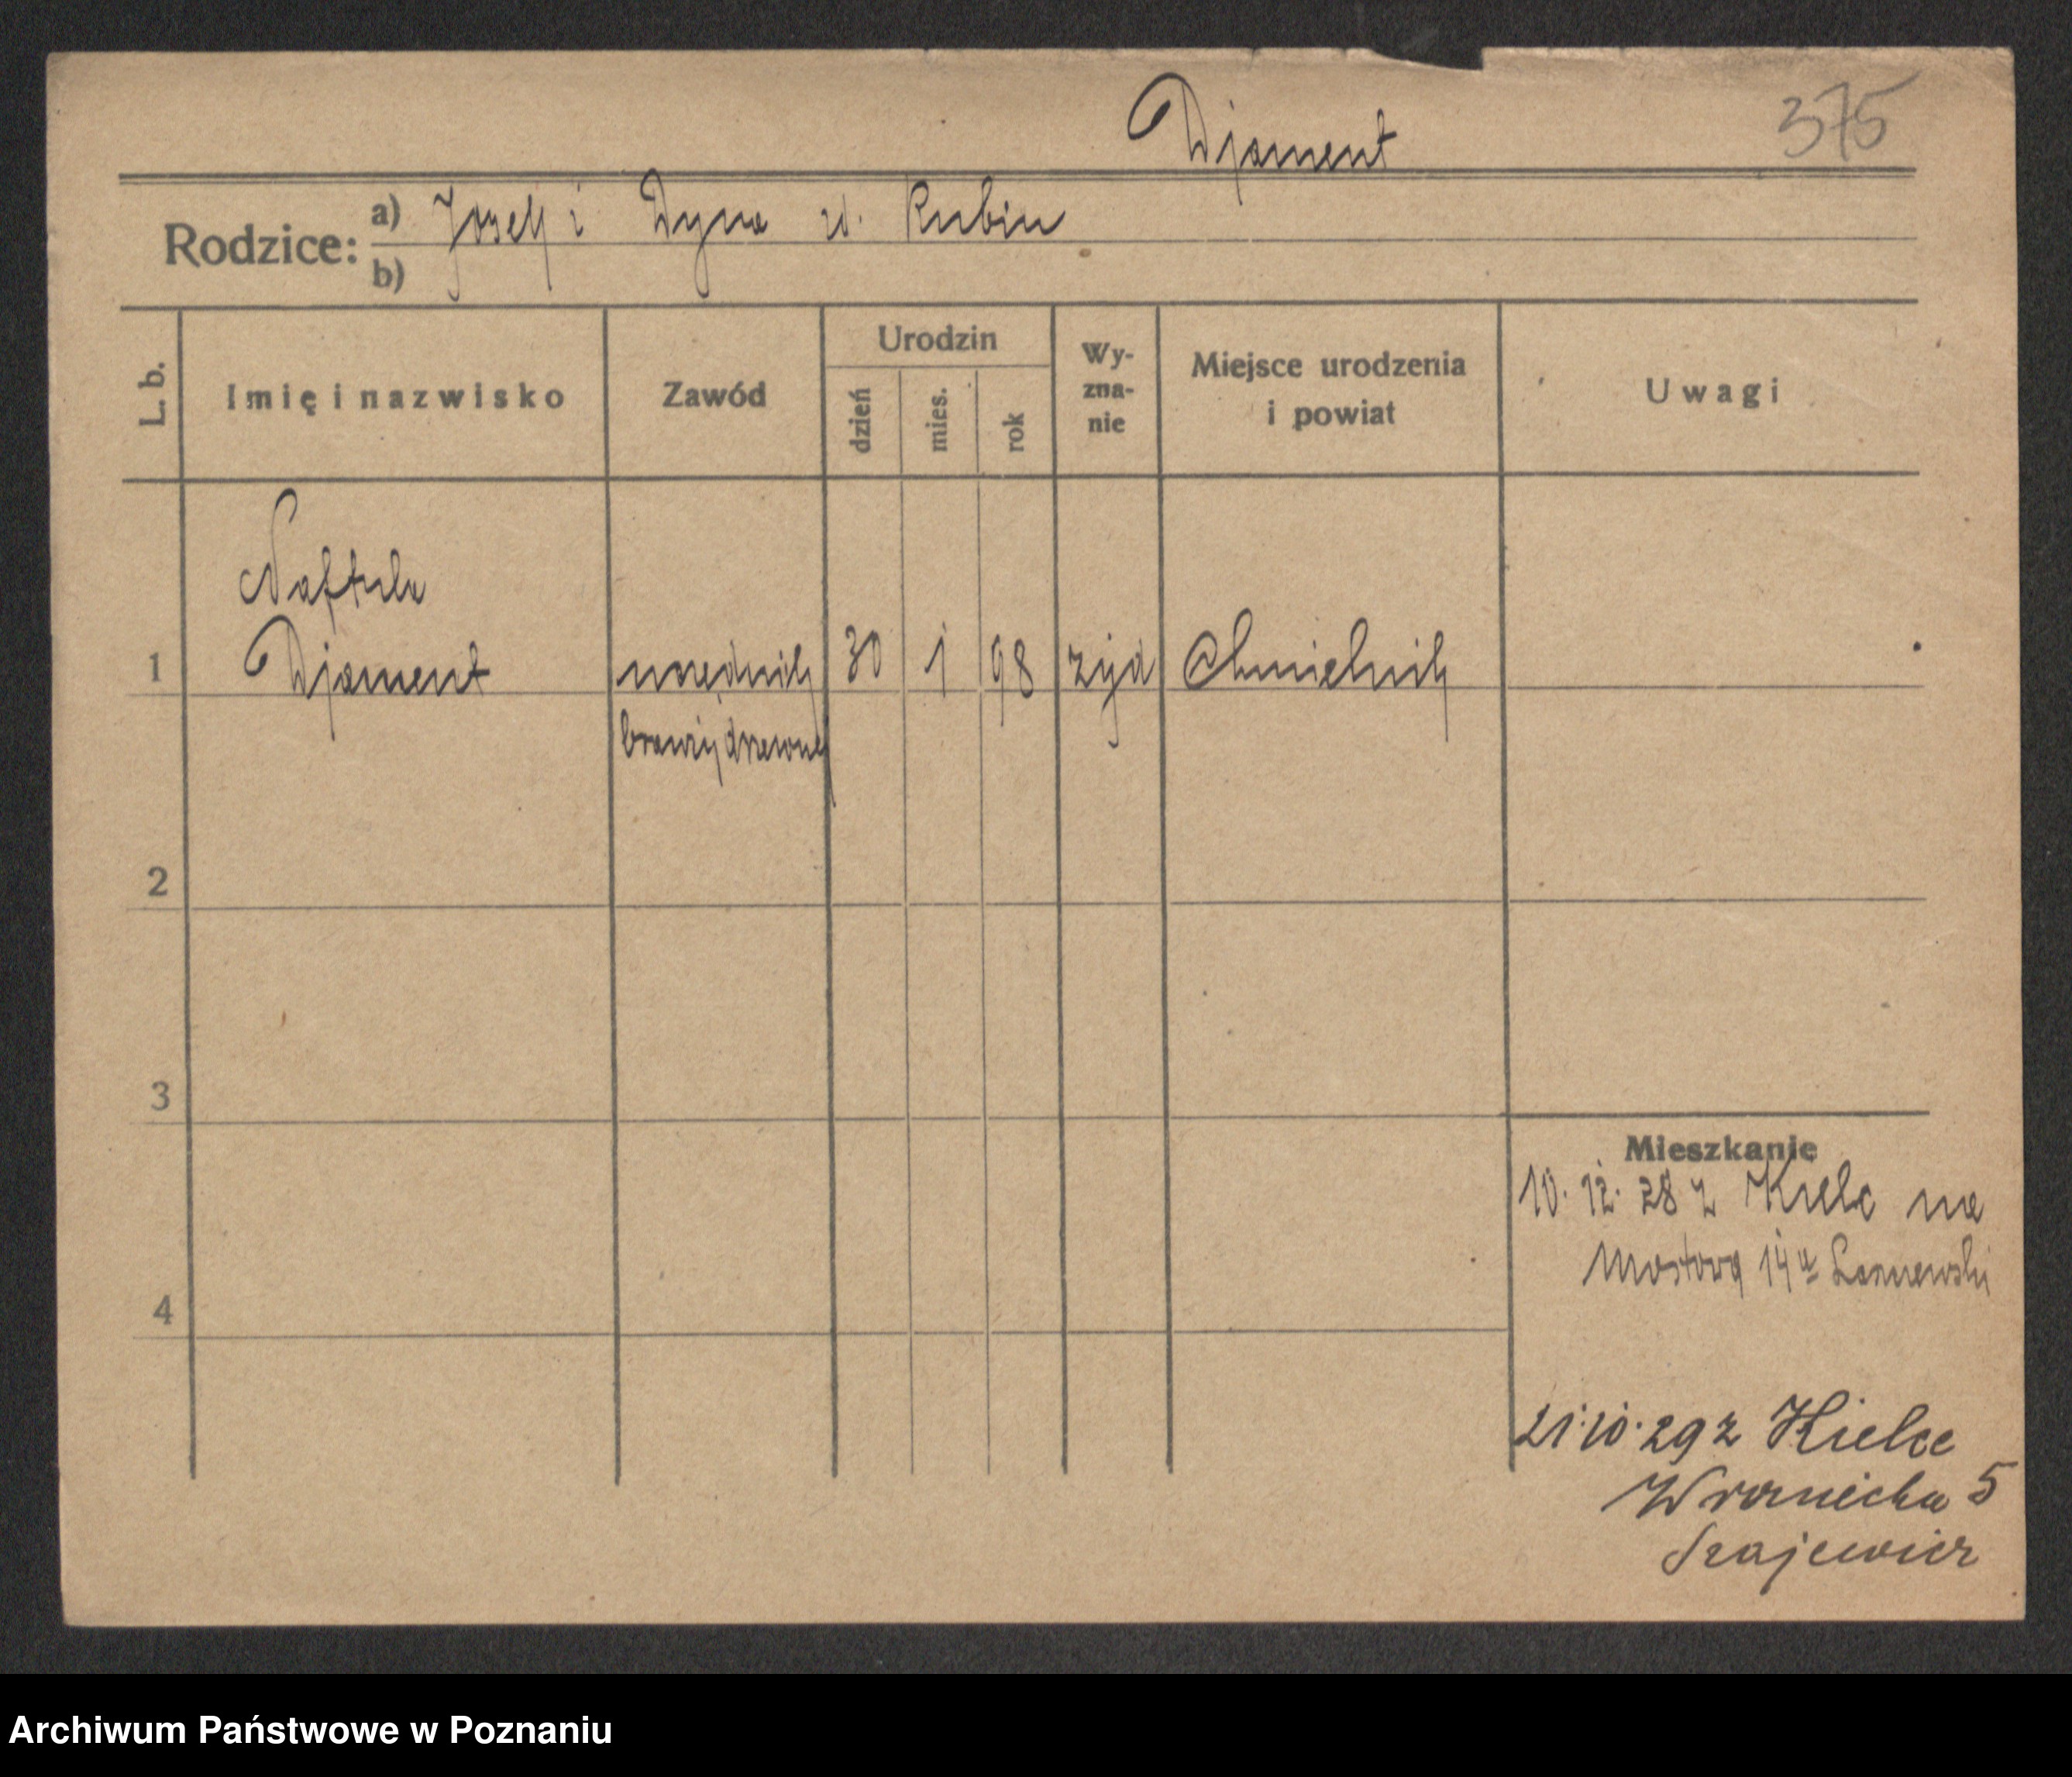 Djament
375
Rodzice:
a) Josek i Dyna z d. Rubin
b)
L. b.
Imię i nazwisko
Zawód
Urodzin
dzień
mies.
rok
Wy-
zna-
nie
Miejsce urodzenia
i powiat
Uwagi
Naftula
1 Djament urzędnik 30 1 98 żyd Chmielnik
branży drzewnej
2
3
4
Mieszkanie
10. 12. 28 z Kielc na
Mostową 14a
21.10.29 z Kielce
Wroniecka 5
Szajewicz
Archiwum Państwowe w Poznaniu